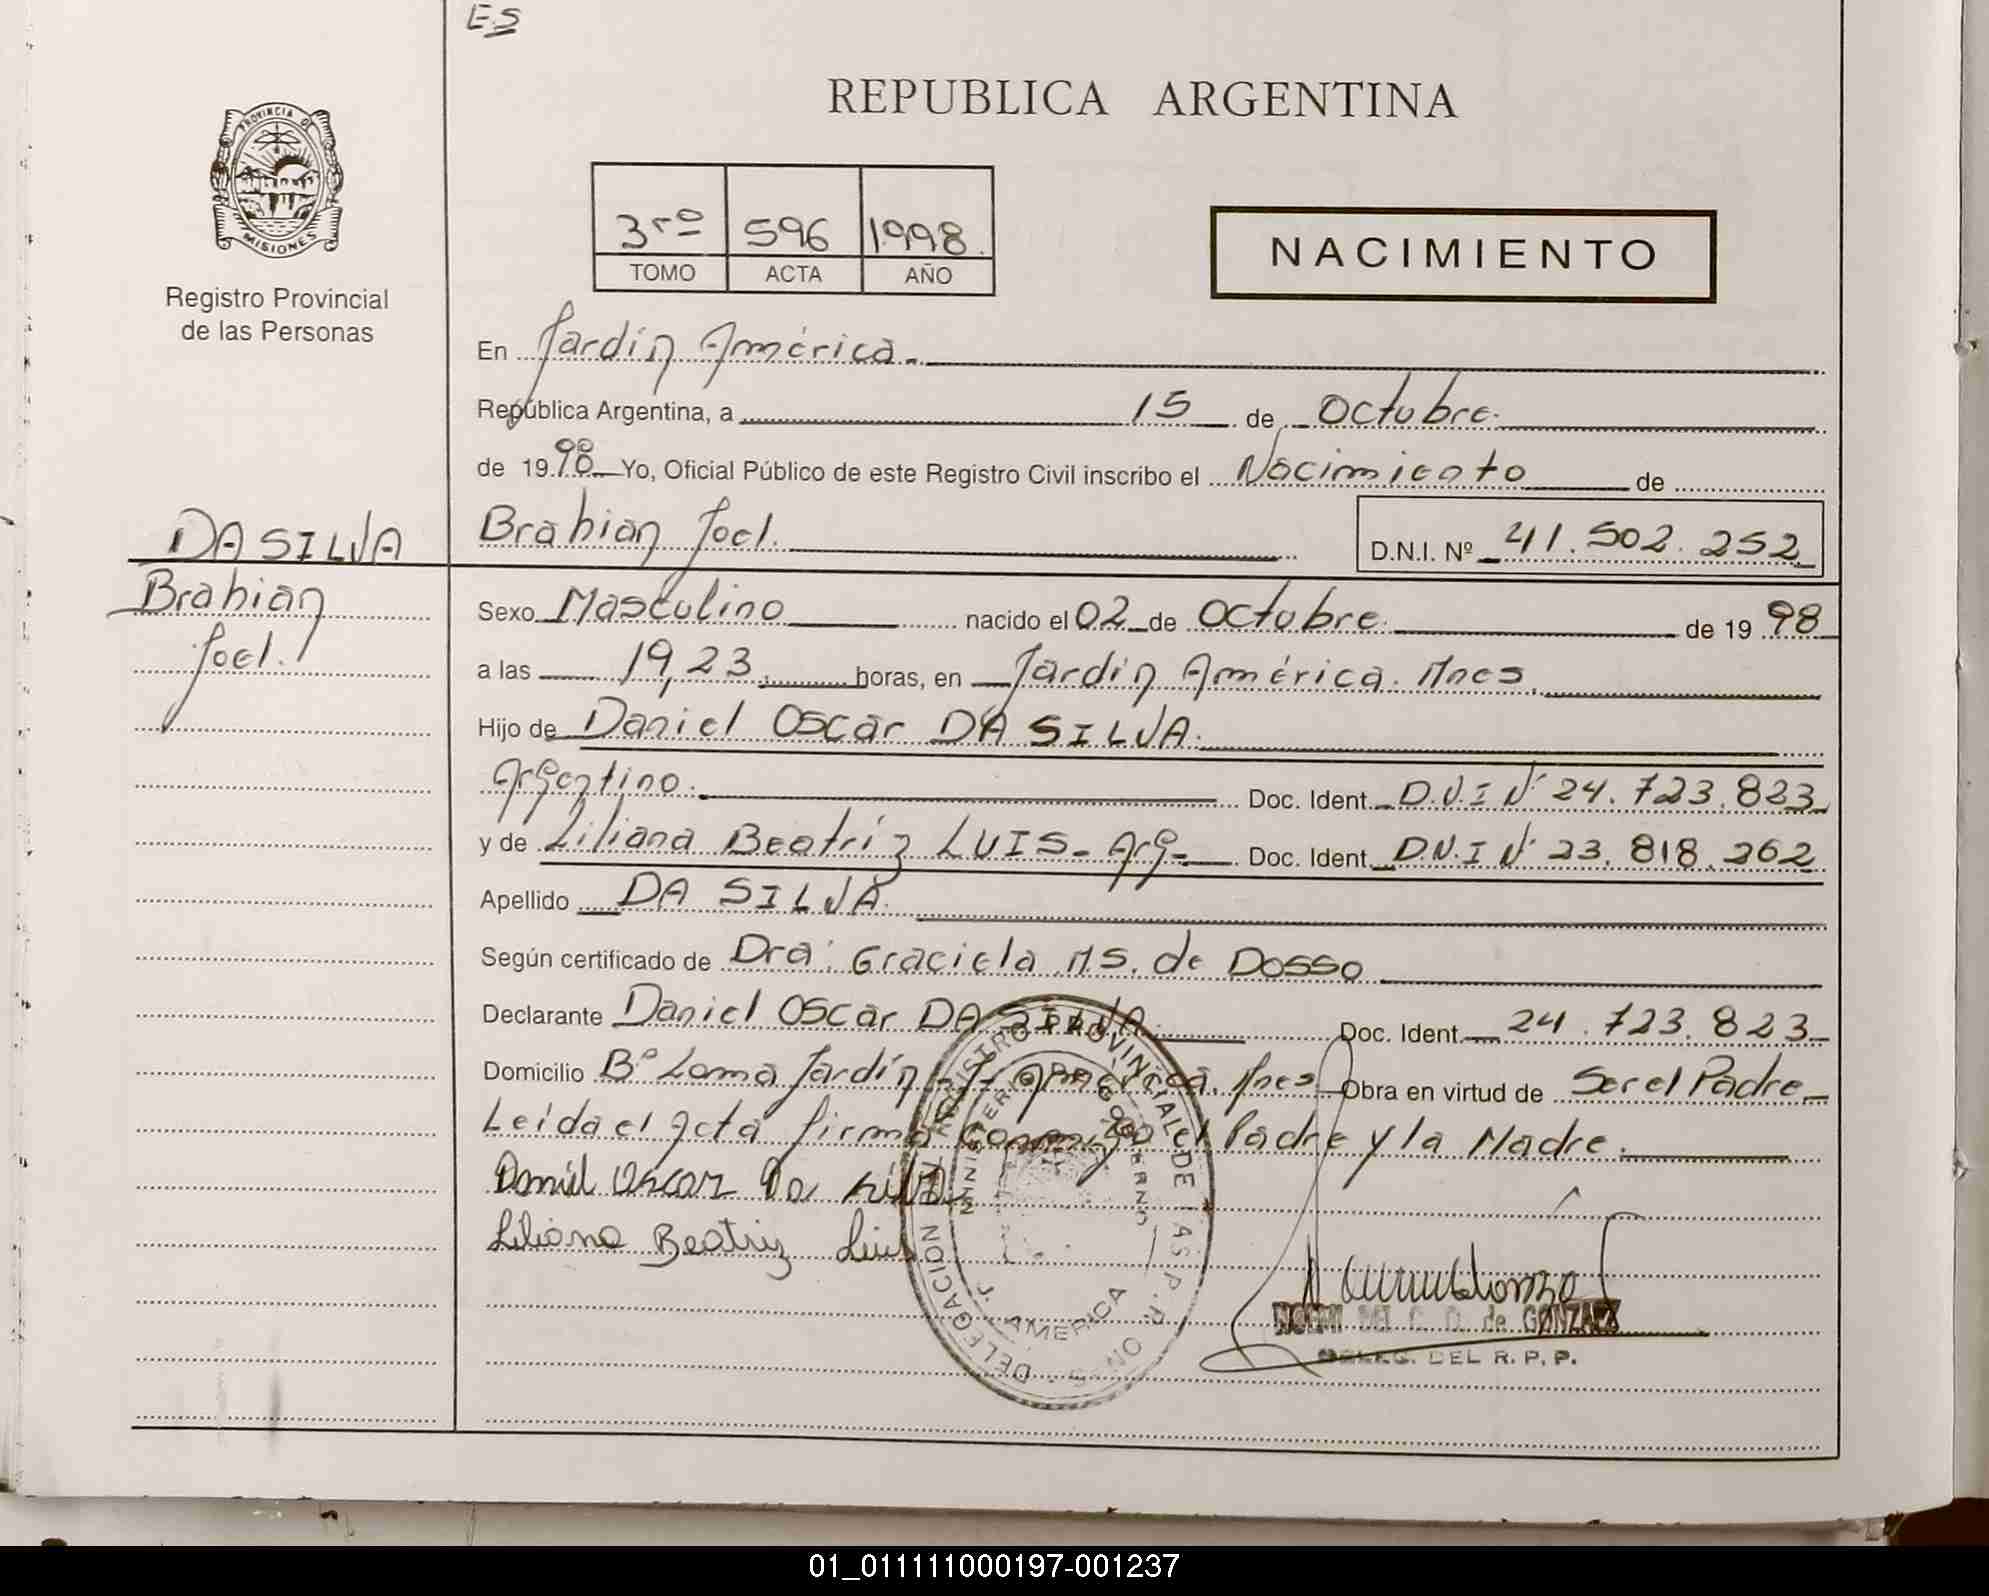 ES
REPUBLICA ARGENTINA
PROVINCIA DE
MISIONES
Registro Provincial
de las Personas
3ro 596 1998.
TOMO ACTA AÑO
NACIMIENTO
En Jardín América.
República Argentina, a 15 de Octubre.
de 1998 Yo, Oficial Público de este Registro Civil inscribo el Nacimiento de
DA SILVA
Brahian Joel.
Brahian Joel. D.N.I. Nº 41.502.252
Sexo Masculino nacido el 02 de Octubre. de 1998
a las 19,23. horas, en Jardín América. Mnes.
Hijo de Daniel Oscar DA SILVA.
Argentino. Doc. Ident. D.N.I Nº 24.723.823
y de Liliana Beatríz LUIS - Arg- Doc. Ident. D.N.I Nº 23.818.262
Apellido DA SILVA.
Según certificado de Dra: Graciela M.S. de Dosso
Declarante Daniel Oscar DA SILVA. Doc. Ident. 24.723.823
Domicilio Bº Loma Jardín - J. América. Mnes Obra en virtud de Ser el Padre
Leída el Acta firma conmigo el Padre y la Madre.
Daniel Oscar Da Silva
Liliana Beatriz Luis
REGISTRO PROVINCIAL DE LAS P.
MINISTERIO DE GOBIERNO
DELEGACION
J. AMERICA
NOEMI DEL C. D. de GONZALEZ
DELEG. DEL R. P. P.
01_011111000197-001237